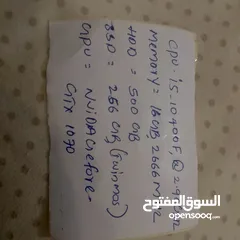 CPU: i5-10400F, @ 2.9
Memory = 16GB, 2666 M
HDD = 500 GB
SSD = 256 GB, (Twinmos)
GPU = NViDA Gefore-
GTX 1070
السوق المفتوح
opensooq.com